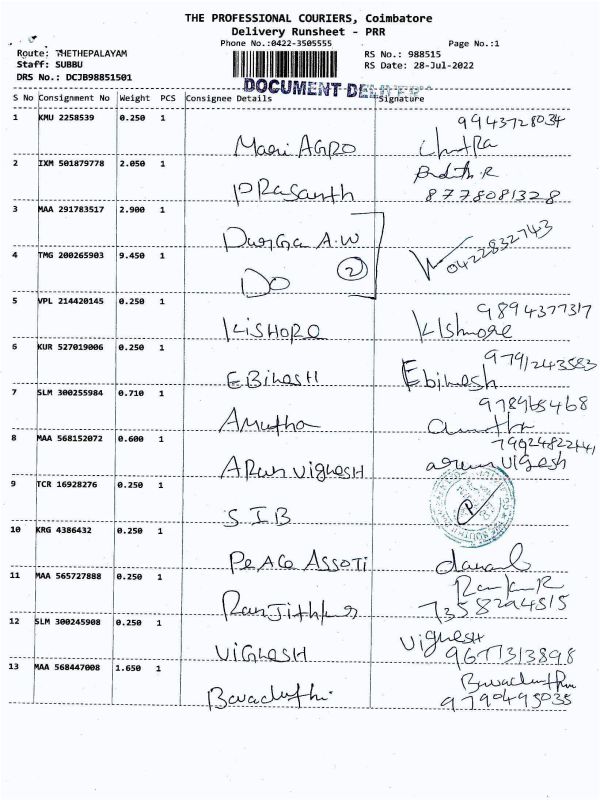 THE PROFESSIONAL COURIERS, Coimbatore
Delivery Runsheet - PRR
Phone No.:0422-3505555
Page No.:1
Route: THETHEPALAYAM
Staff: SUBBU
DRS No.: DCJB98851501
RS No.: 988515
RS Date: 28-Jul-2022
DOCUMENT
S No Consignment No Weight PCS Consignee Details Signature
1 KMU 2258539 0.250 1
9943728034
Maeri AGRO
2 IXM 501879778 2.050 1
Prasanth 8778081328
3 MAA 291783517 2.900 1
Durga A.W
4 TMG 200265903 9.450 1
04222832743
DO 2
5 VPL 214420145 0.250 1
9894377317
KISHORE Kishore
6 KUR 527019006 0.250 1
9791243583
EBinesH Ebinesh
7 SLM 300255984 0.710 1
978965468
Amutha amutha
8 MAA 568152072 0.600 1
ARun VigHESH arun Vigesh
9 TCR 16928276 0.250 1
S.I.B
10 KRG 4386432 0.250 1
PeAce Assoti
11 MAA 565727888 0.250 1
RanJith
7358294515
12 SLM 300245908 0.250 1
VIGHESH VigHESH
9677313898
13 MAA 568447008 1.650 1
9790495035